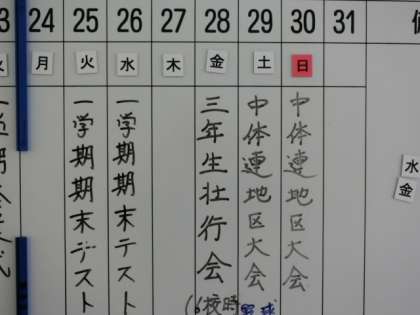 24 25 26 27 28 29 30 31
月 火 水 木 金 土 日
一学期期末テスト
一学期期末テスト
三年生壮行会
(6校時
中体連地区大会
野球
中体連地区大会
水
金